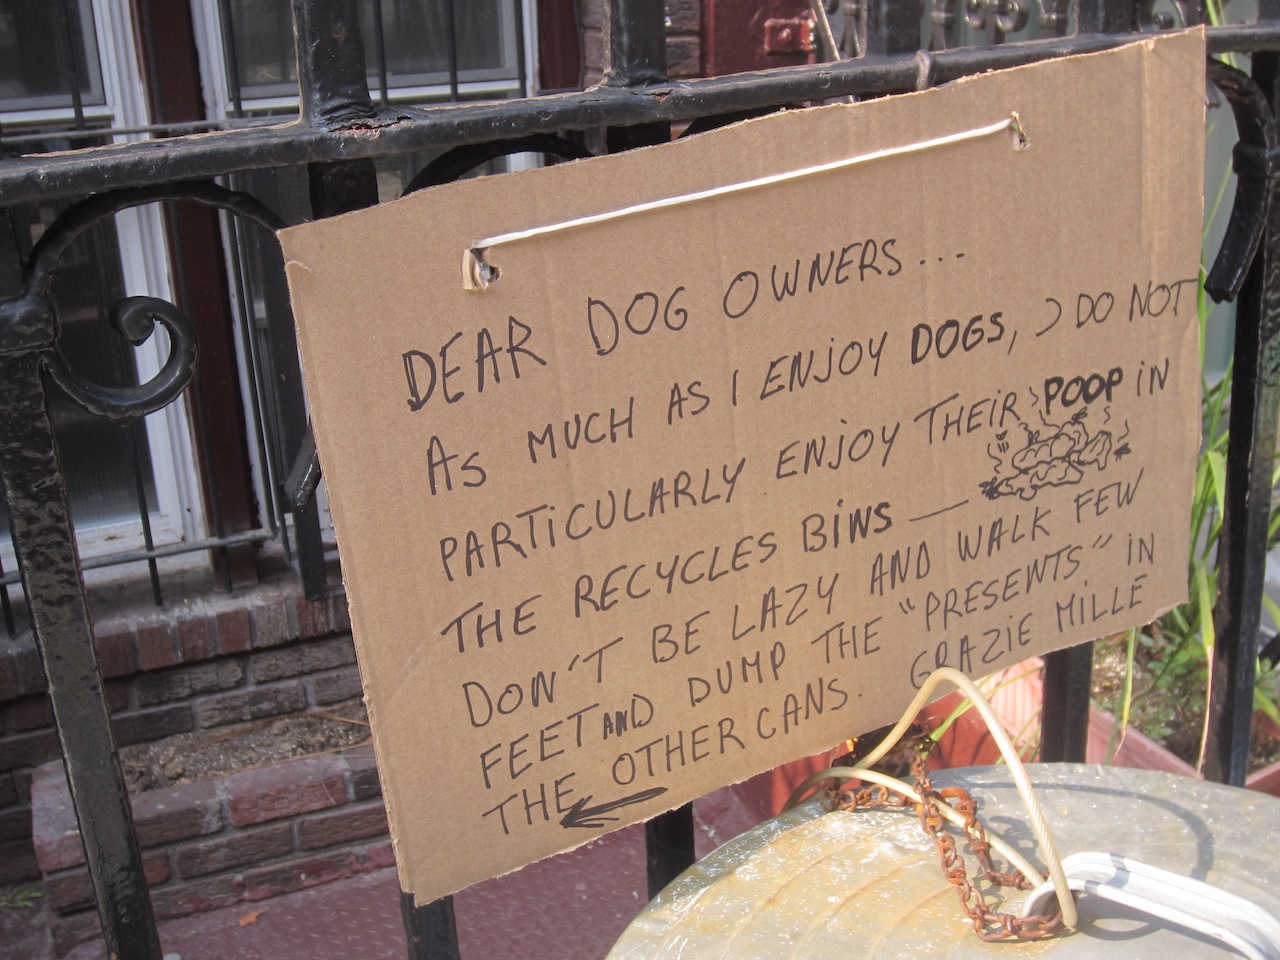 DEAR DOG OWNERS...
AS MUCH AS I ENJOY DOGS, I DO NOT
PARTICULARLY ENJOY THEIR POOP IN
THE RECYCLES BINS
DON'T BE LAZY AND WALK FEW
FEET AND DUMP THE "PRESENTS" IN
THE OTHER CANS. GRAZIE MILLE